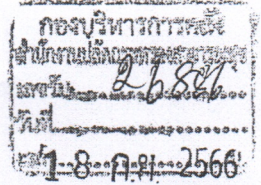 กองบริหารการคลัง
สำนักงานปลัดกระทรวงสาธารณสุข
เลขรับ
วันที่
1 8 ก.ค. 2566